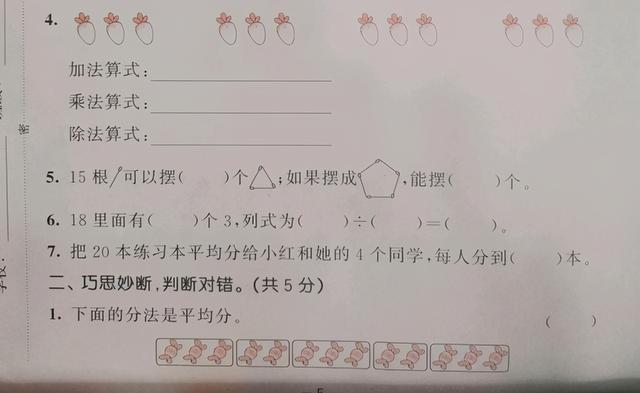 4.
加法算式:
乘法算式:
除法算式:
5. 15 根 可以摆( )个 ;如果摆成 ,能摆( )个。
6. 18 里面有( )个 3,列式为( )÷( )=( )。
7. 把 20 本练习本平均分给小红和她的 4 个同学,每人分到( )本。
二、巧思妙断,判断对错。(共 5 分)
1. 下面的分法是平均分。 ( )
密
学校: